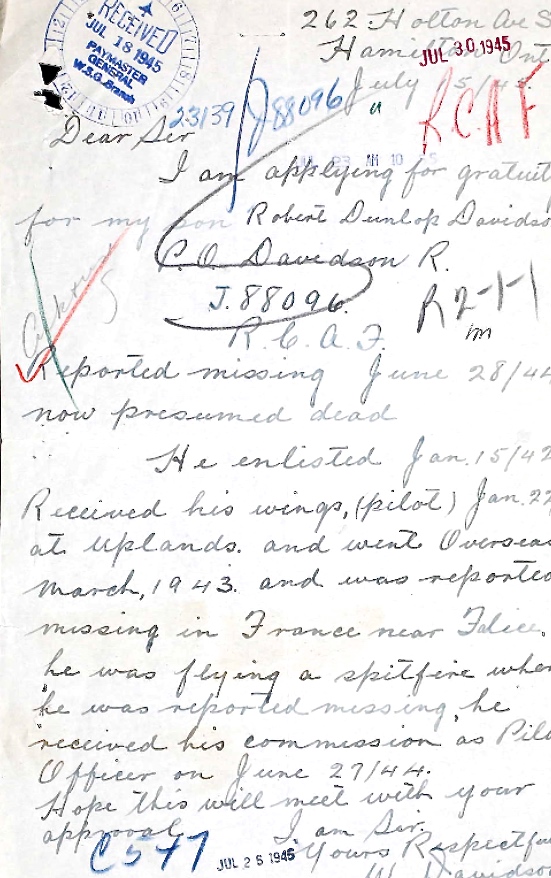 262 Holton Ave S
Hamilton Ont
July 15/45.
RECEIVED
JUL 18 1945
PAYMASTER
GENERAL
W.S.G. Branch
JUL 30 1945
23139
J88096
R.C.A.F
Dear Sir
I am applying for gratuit
for my son Robert Dunlop Davidso
P.O. Davidson R.
J.88096.
R2-1-1
R.C.A.F.
Reported missing June 28/44
now presumed dead
He enlisted Jan. 15/42
Received his wings, (pilot) Jan. 22
at Uplands. and went Overseas
March, 1943. and was reported
missing in France near
he was flying a spitfire when
he was reported missing, he
received his commission as Pilo
Officer on June 27/44.
Hope this will meet with your
approval.
I am Sir
C547
JUL 26 1945
Yours Respectful
W. Davidso